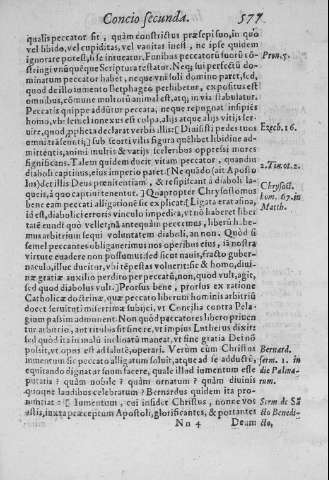 Concio secunda. 577
qualis peccator sit, quàm constrictus præsepi suo, in quo
vel libido, vel cupiditas, vel vanitas inest, ne ipse quidem
ignorare potest, si se intueatur. Funibus peccatorũ suorũ cõ-
stringi vnũquẽque Scriptura testatur. Neq; sui perfectũ do-
minatum peccator habet, neque vni soli domino paret, sed,
quod de illo iumento Betphageo perhibetur, expositus est
omnibus, cõmune multorũ animal est, atq; in via stabulatur.
Peccatis quippe additur peccata, neque repugnat insipiẽs
homo, vbi semel in nexus est culpa, alijs atque alijs vitijs ser-
uire, quod propheta declarat verbis illis: [Diuisisti pedes tuos
omni transeunti,] sub scorti vilis figura quẽlibet libidinẽ ad-
mittentis, animi multis & varijs sceleribus oppressi mores
significans. Talem quidem ducit vitam peccator, quandiu
diaboli captiuus, eius imperio paret. [Ne quãdo (ait Aposto
lus) det illis Deus pœnitentiam, & resipiscant à diaboli la-
queis, à quo captiui tenentur.] Quapropter Chrysostomus
bene eam peccati alligationẽ sic explicat: [Ligata erat asina,
id est, diabolici erroris vinculo impedita, vt nõ haberet liber
tatẽ eundi quò vellet; nã antequàm peccemus, liberũ habe-
mus arbitrium sequi voluntatem diaboli, an non. Quòd si
semel peccantes obligauerimus nos operibus eius, iã nostra
virtute euadere non possumus: sed sicut nauis, fracto guber-
naculo, illuc ducitur, vbi tẽpestas voluerit: sic & homo, diui-
næ gratiæ auxilio perdito per peccatũ, non, quod vult, agit,
sed quod diabolus vult.] Prorsus bene, prorsus ex ratione
Catholicæ doctrinæ, quæ peccato liberum hominis arbitriũ
docet seruituti miserrimæ subijci, vt Concilia contra Pela-
gium passim admonent. Non quòd peccatores libero priuen
tur arbitrio, aut titulus sit sine re, vt impius Lutherus dixit:
sed quòd ita in malũ inclinati maneãt, vt sine gratia Dei nõ
possit, vt opus est ad salutẽ, operari. Verùm cùm Christus
iumentum sic peccato alligatum soluit, atque ad se adductũ,
equitando dignatur suum facere, quale illud iumentum esse
putatis? quàm nobile? quàm ornatum? quàm diuinis
quoque laudibus celebratum? Bernardus quidem ita pro-
nuntiat: [Iumentum, cui insidet Christus, nonne vos
estis, iuxta præceptum Apostoli, glorificantes, & portantes
Nn 4 Deum
Prou. 5.
Ezech. 16.
2. Tim. 2.
Chrysost.
hom. 67. in
Matth.
Bernard.
serm. 1. in
die Palma-
rum.
Serm. de Sã
cto Benedi-
cto,